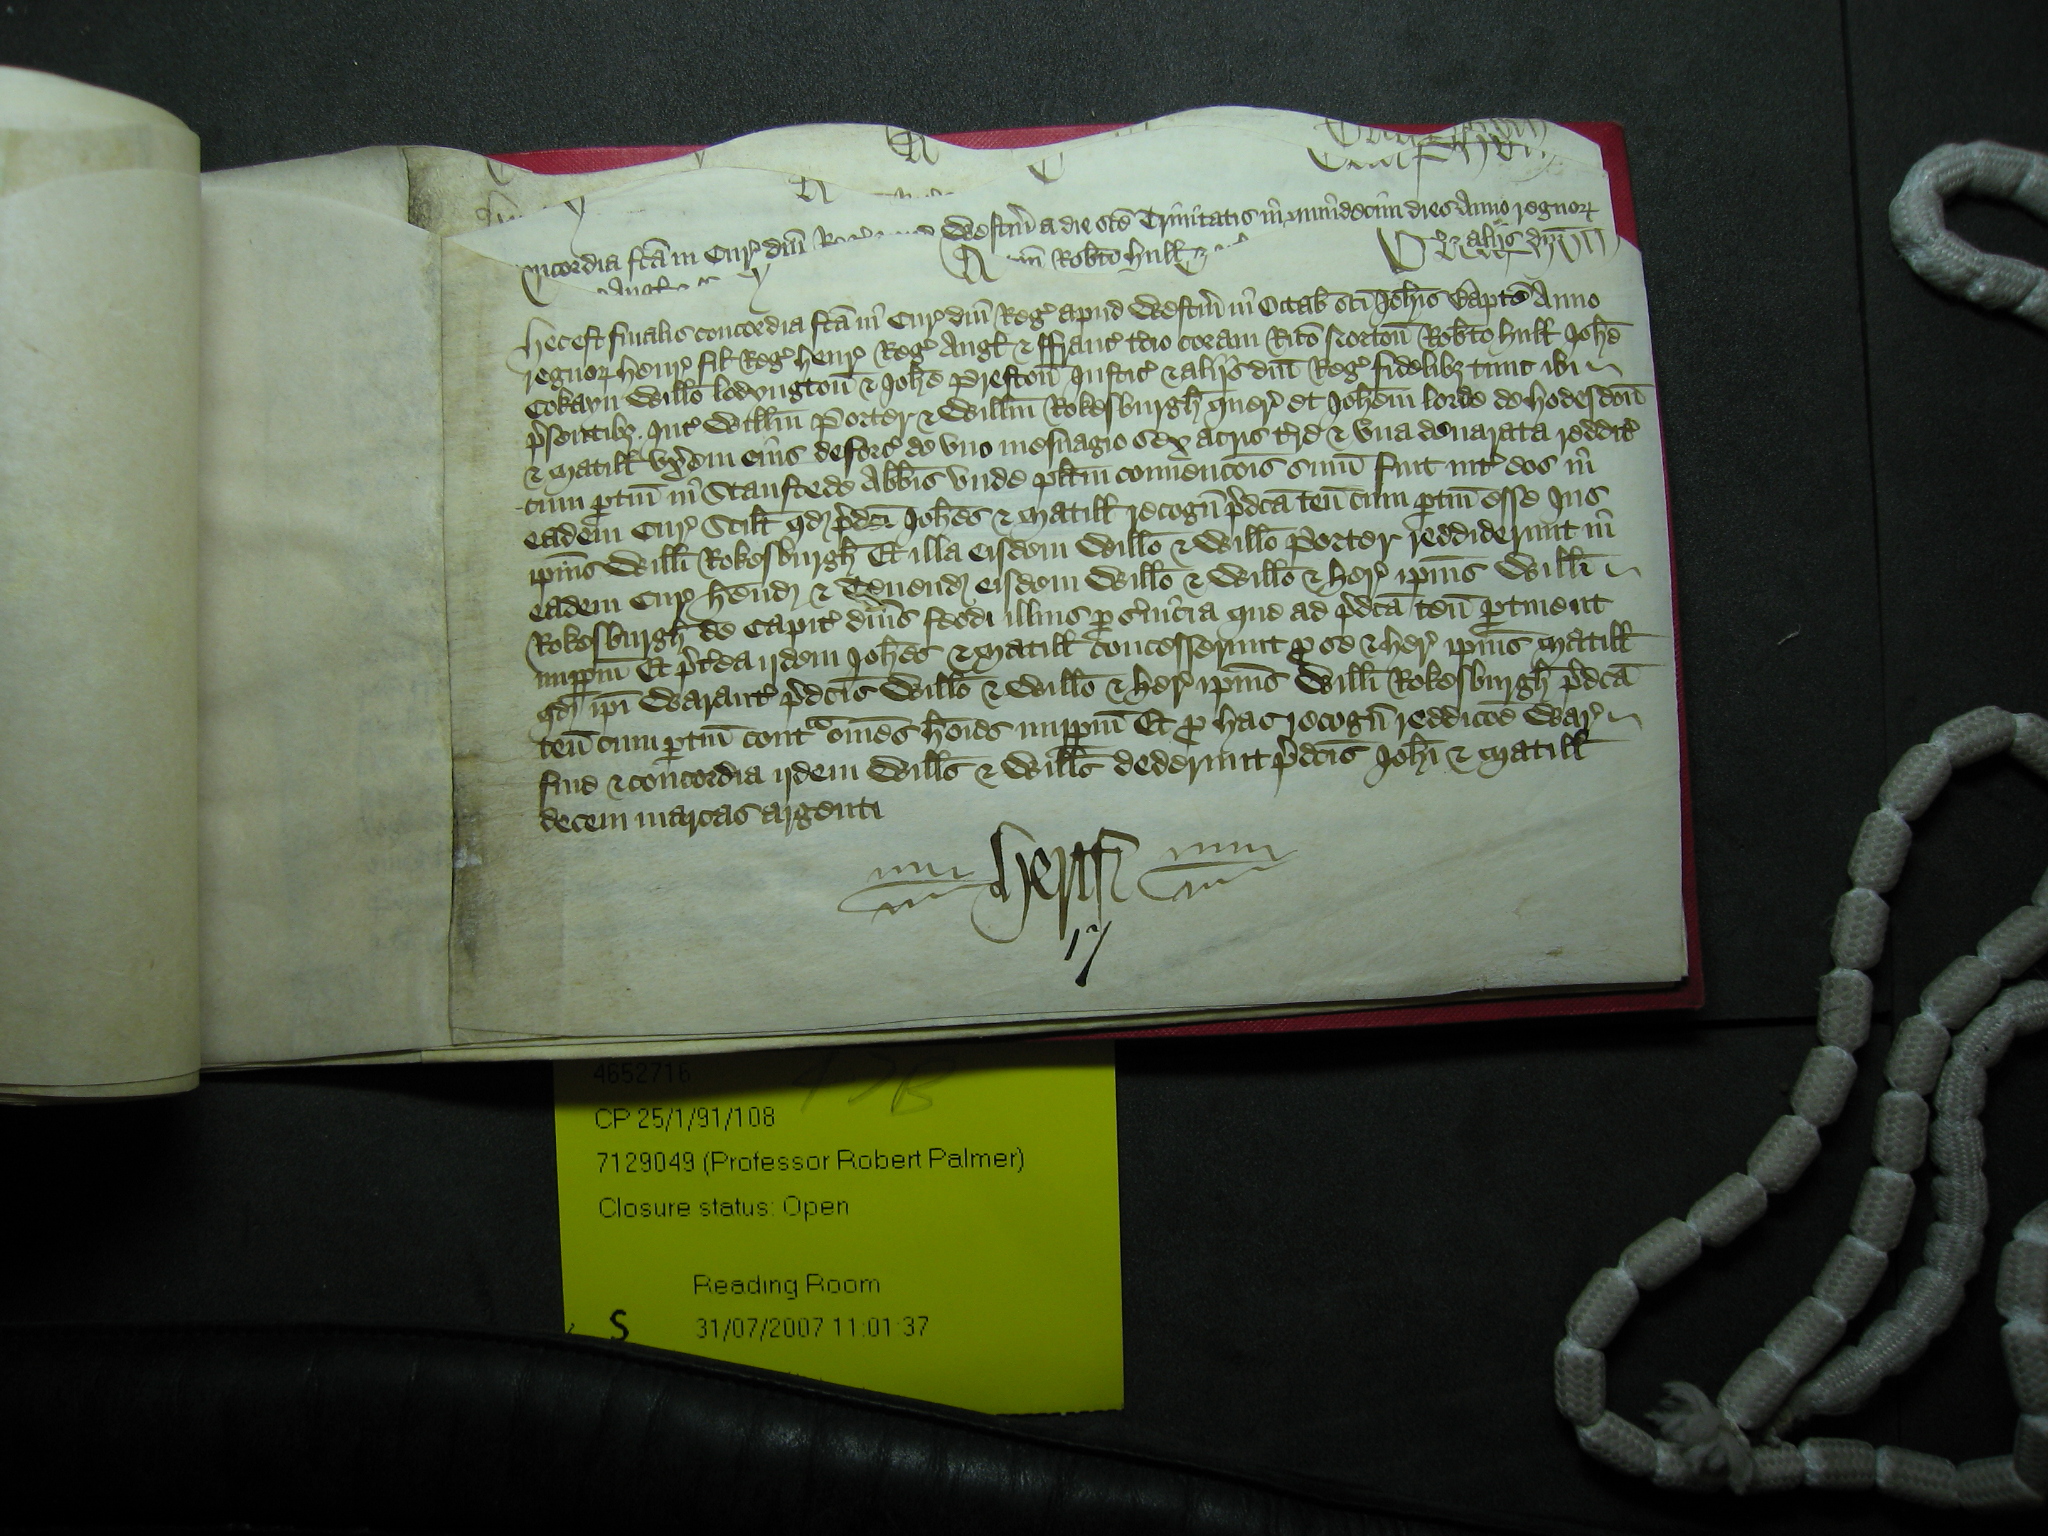 Westm̄ a die sc̄e Trinitatis in quindecim dies Anno regnoꝝ
concordia fc̄a in Cur̛ dn̄i
Rob̄to hull
Hec est finalis concordia fc̄a in Cur̛ dn̄i Reg̛ apud Westm̄ in Octab̄ sc̄i Joh̄is Bapt̄e Anno
regnoꝝ Henr̛ fil̄ Reg̛ Henr̛ Reg̛ Angl̄ & ffranc̛ t̄cio coram Ric̄o Norton̄ Rob̄to Hull Joh̄e
Cokayn Will̄o lodyngton̄ & Joh̄e Preston̄ Justic̛ & alijs dn̄i Reg̛ fidelibꝫ tunc ibi
p̄sentibꝫ. Int̛ Will̄m Porter & Will̄m Rokesburgh̄ quer̛ et Joh̄em lorde de Hodesdon̄
& Matill̄ vx̄em eius deforc̛ de vno mesuagio sex acris t̄re & vna denarata reddit̛
cum ptin̄ in Stanstede Abb̄is vnde pl̄itm conuenc̄ois sum̄ fuit int̛ eos in
eadem Cur̛ Scil̄t qd̛ p̄dc̄i Joh̄es & Matill̄ recogn̄ p̄dc̄a ten̄ cum ptin̄ esse Jus
ip̄ius Will̄i Rokesburgh̄ Et illa eisdem Will̄o & Will̄o Porter reddiderunt in
eadem Cur̛ h̄end̛ & Tenend̛ eisdem Will̄o & Will̄o & her̛ ip̄ius Will̄i
Rokesburgh̄ de Capit̛ dn̄is feodi illius p s̄uicia que ad p̄dc̄a ten̄ ptinent
imppm̄ Et p̄t̄ea ijdem Joh̄es & Matill̄ concesserunt p se & her̛ ip̄ius Matill̄
qd̛ ip̄i Warant̛ p̄dc̄is Will̄o & Will̄o & her̛ ip̄ius Will̄i Rokesburgh̄ p̄dc̄a
ten̄ cum ptin̄ contᵃ om̄es h̄oies imppm̄ Et p hac recogn̄ reddic̄oe War̛
fine & concordia ijdem Will̄s & Will̄s dederunt p̄dc̄is Joh̄i & Matill̄
decem marcas argenti
Hertf̄
17
4652716
CP 25/1/91/108
7129049 (Professor Robert Palmer)
Closure status: Open
Reading Room
S 31/07/2007 11:01:37